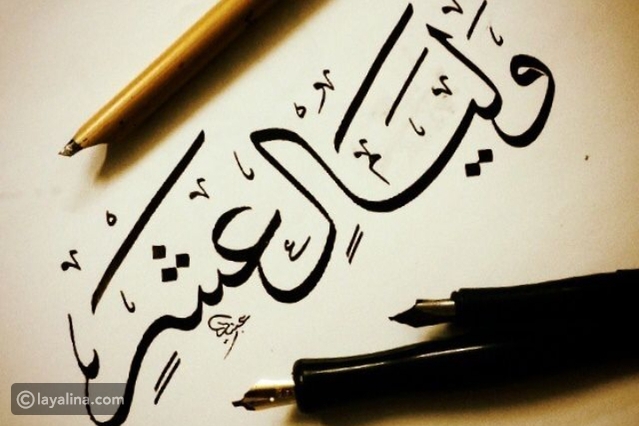 وَلَيَالٍ عَشْرٍ
©layalina.com